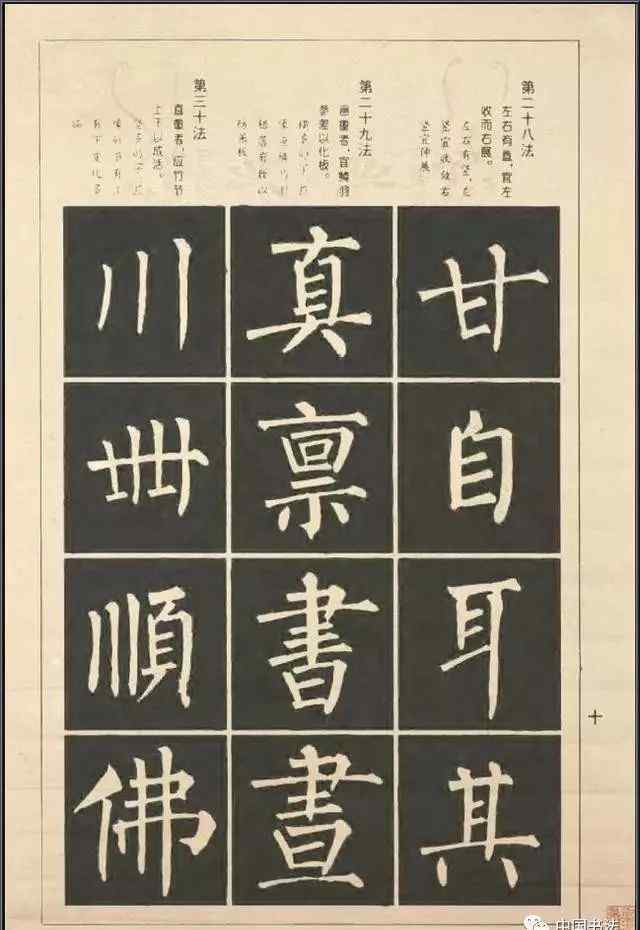 第二十八法
左右有直，宜左
收而右展。
左右有竖，左
竖宜收敛右
竖宜伸展
甘
自
耳
其
第二十九法
画重者，宜鳞羽
参差以化板。
真
禀
書
晝
第三十法
直重者，应竹节
上下以成活。
川
卌
順
佛
十
中国书法